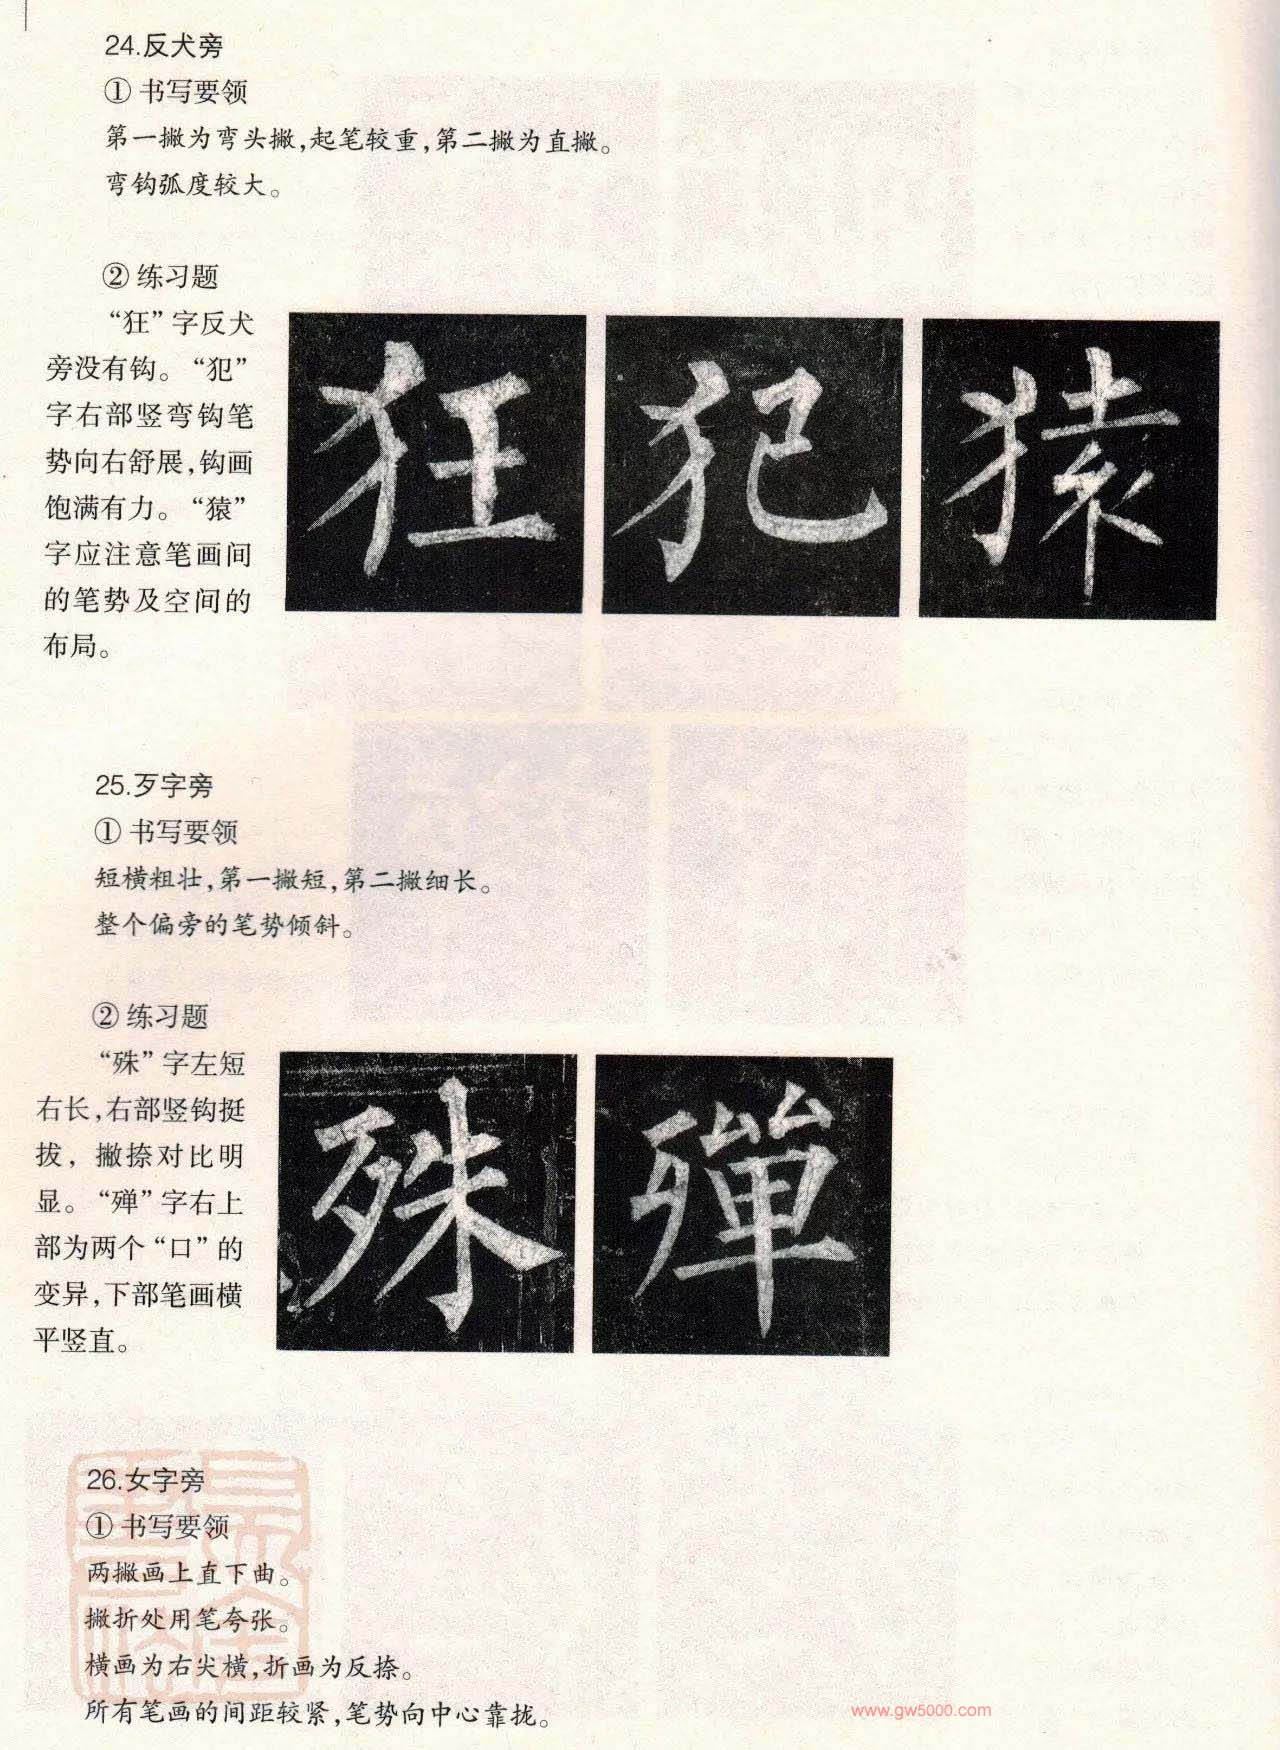 24.反犬旁
① 书写要领
第一撇为弯头撇,起笔较重,第二撇为直撇。
弯钩弧度较大。
② 练习题
“狂”字反犬
旁没有钩。“犯”
字右部竖弯钩笔
势向右舒展,钩画
饱满有力。“猿”
字应注意笔画间
的笔势及空间的
布局。
狂 犯 猿
25.歹字旁
① 书写要领
短横粗壮,第一撇短,第二撇细长。
整个偏旁的笔势倾斜。
② 练习题
“殊”字左短
右长,右部竖钩挺
拔，撇捺对比明
显。“殚”字右上
部为两个“口”的
变异,下部笔画横
平竖直。
殊 殫
26.女字旁
① 书写要领
两撇画上直下曲。
撇折处用笔夸张。
横画为右尖横,折画为反捺。
所有笔画的间距较紧,笔势向中心靠拢。
www.gw5000.com